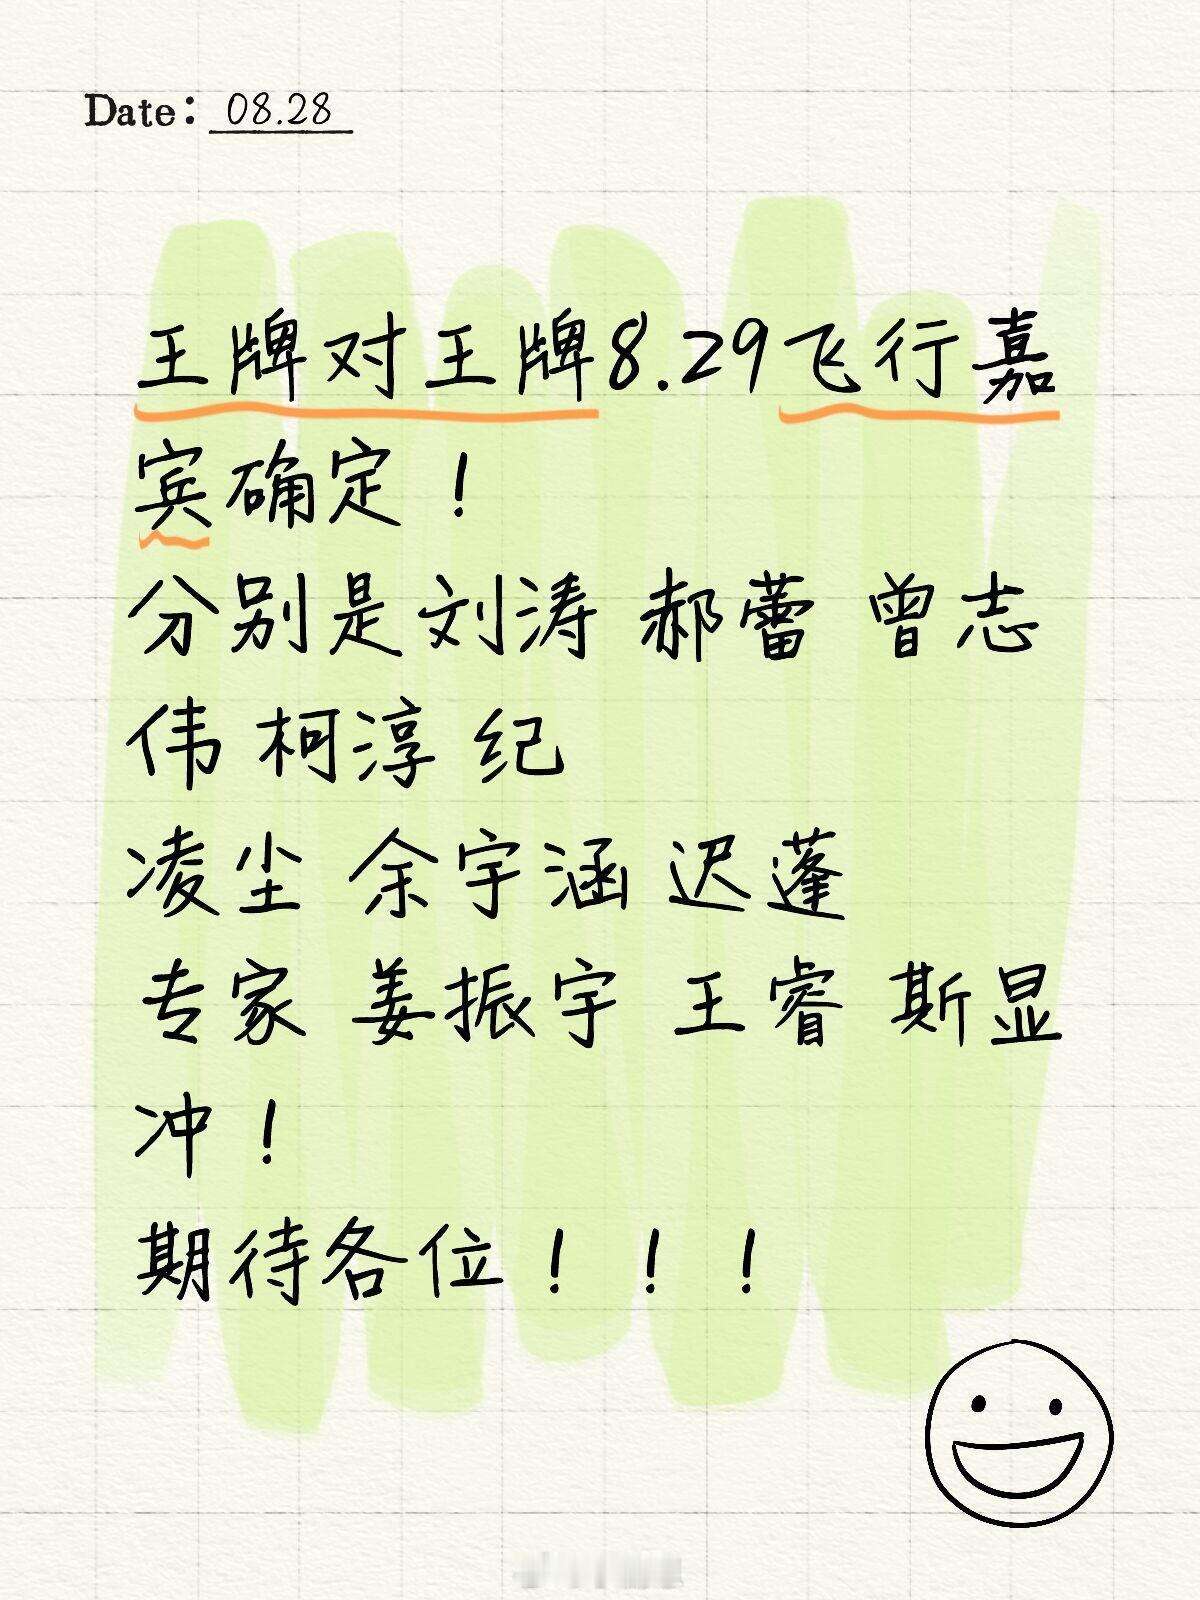 Date: 08.28
王牌对王牌8.29飞行嘉
宾确定！
分别是刘涛 郝蕾 曾志
伟 柯淳 纪
凌尘 余宇涵 迟蓬
专家 姜振宇 王睿 斯显
冲！
期待各位！！！